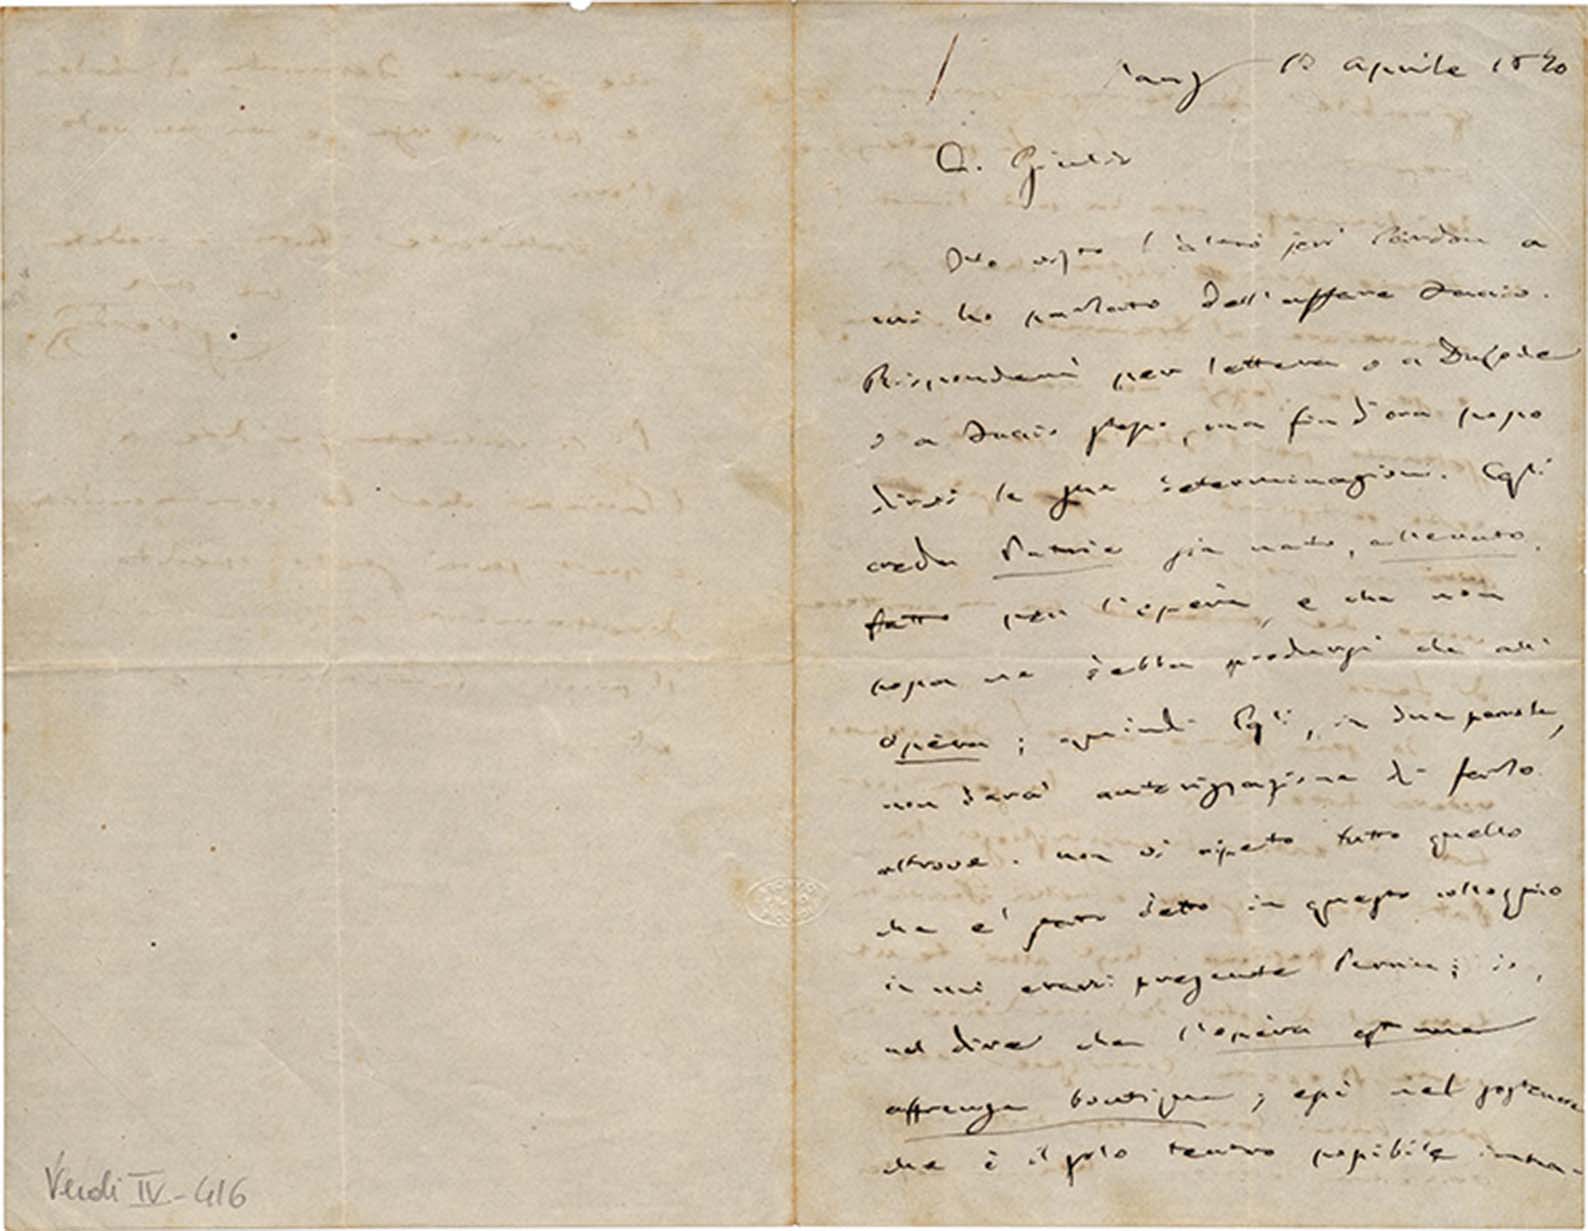 13 Aprile 1870
C. Giulio
Ho visto l'altro jeri Sardou e
mi ha parlato dell'affare
Risponderà per lettera o a Du Locle
o a stesso, ma fin d'ora posso
dirvi le sue determinazioni. Egli
crede Patrie già nato, allevato,
fatto per l'opéra, e che non
possa ne debba prodursi che all'
opéra; quindi Egli, in due parole,
non darà autorizzazione di farlo
altrove. non vi ripeto tutto quello
che e' stato detto in questo colloquio
in cui eravi presente io,
nel dire che l'opéra est une
affreuse boutique; essi nel sostenere
che è il solo teatro possibile
Verdi IV-416